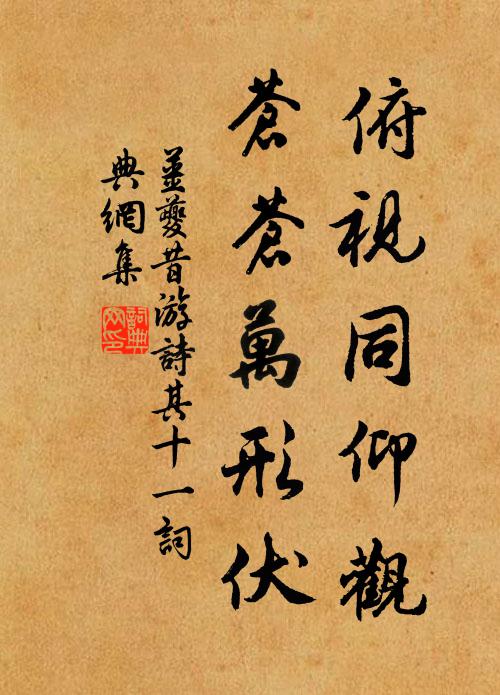 俯視同仰觀
蒼蒼萬形伏
姜夔昔游詩其十一詞
典網集
詞典網印